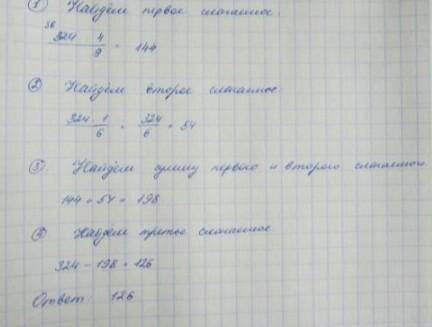 ① Найдём первое слагаемое.
36
324 4 / 9 = 144
② Найдём второе слагаемое
324 1 / 6 = 324 / 6 = 54
③. Найдём сумму первого и второго слагаемого.
144 + 54 = 198
④ Найдём третье слагаемое
324 - 198 = 126
Ответ: 126